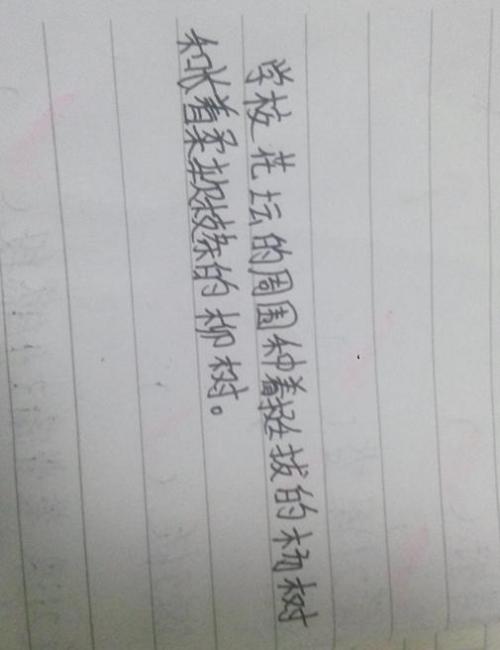 学校花坛的周围种着挺拔的杨树
和长着柔软枝条的柳树。